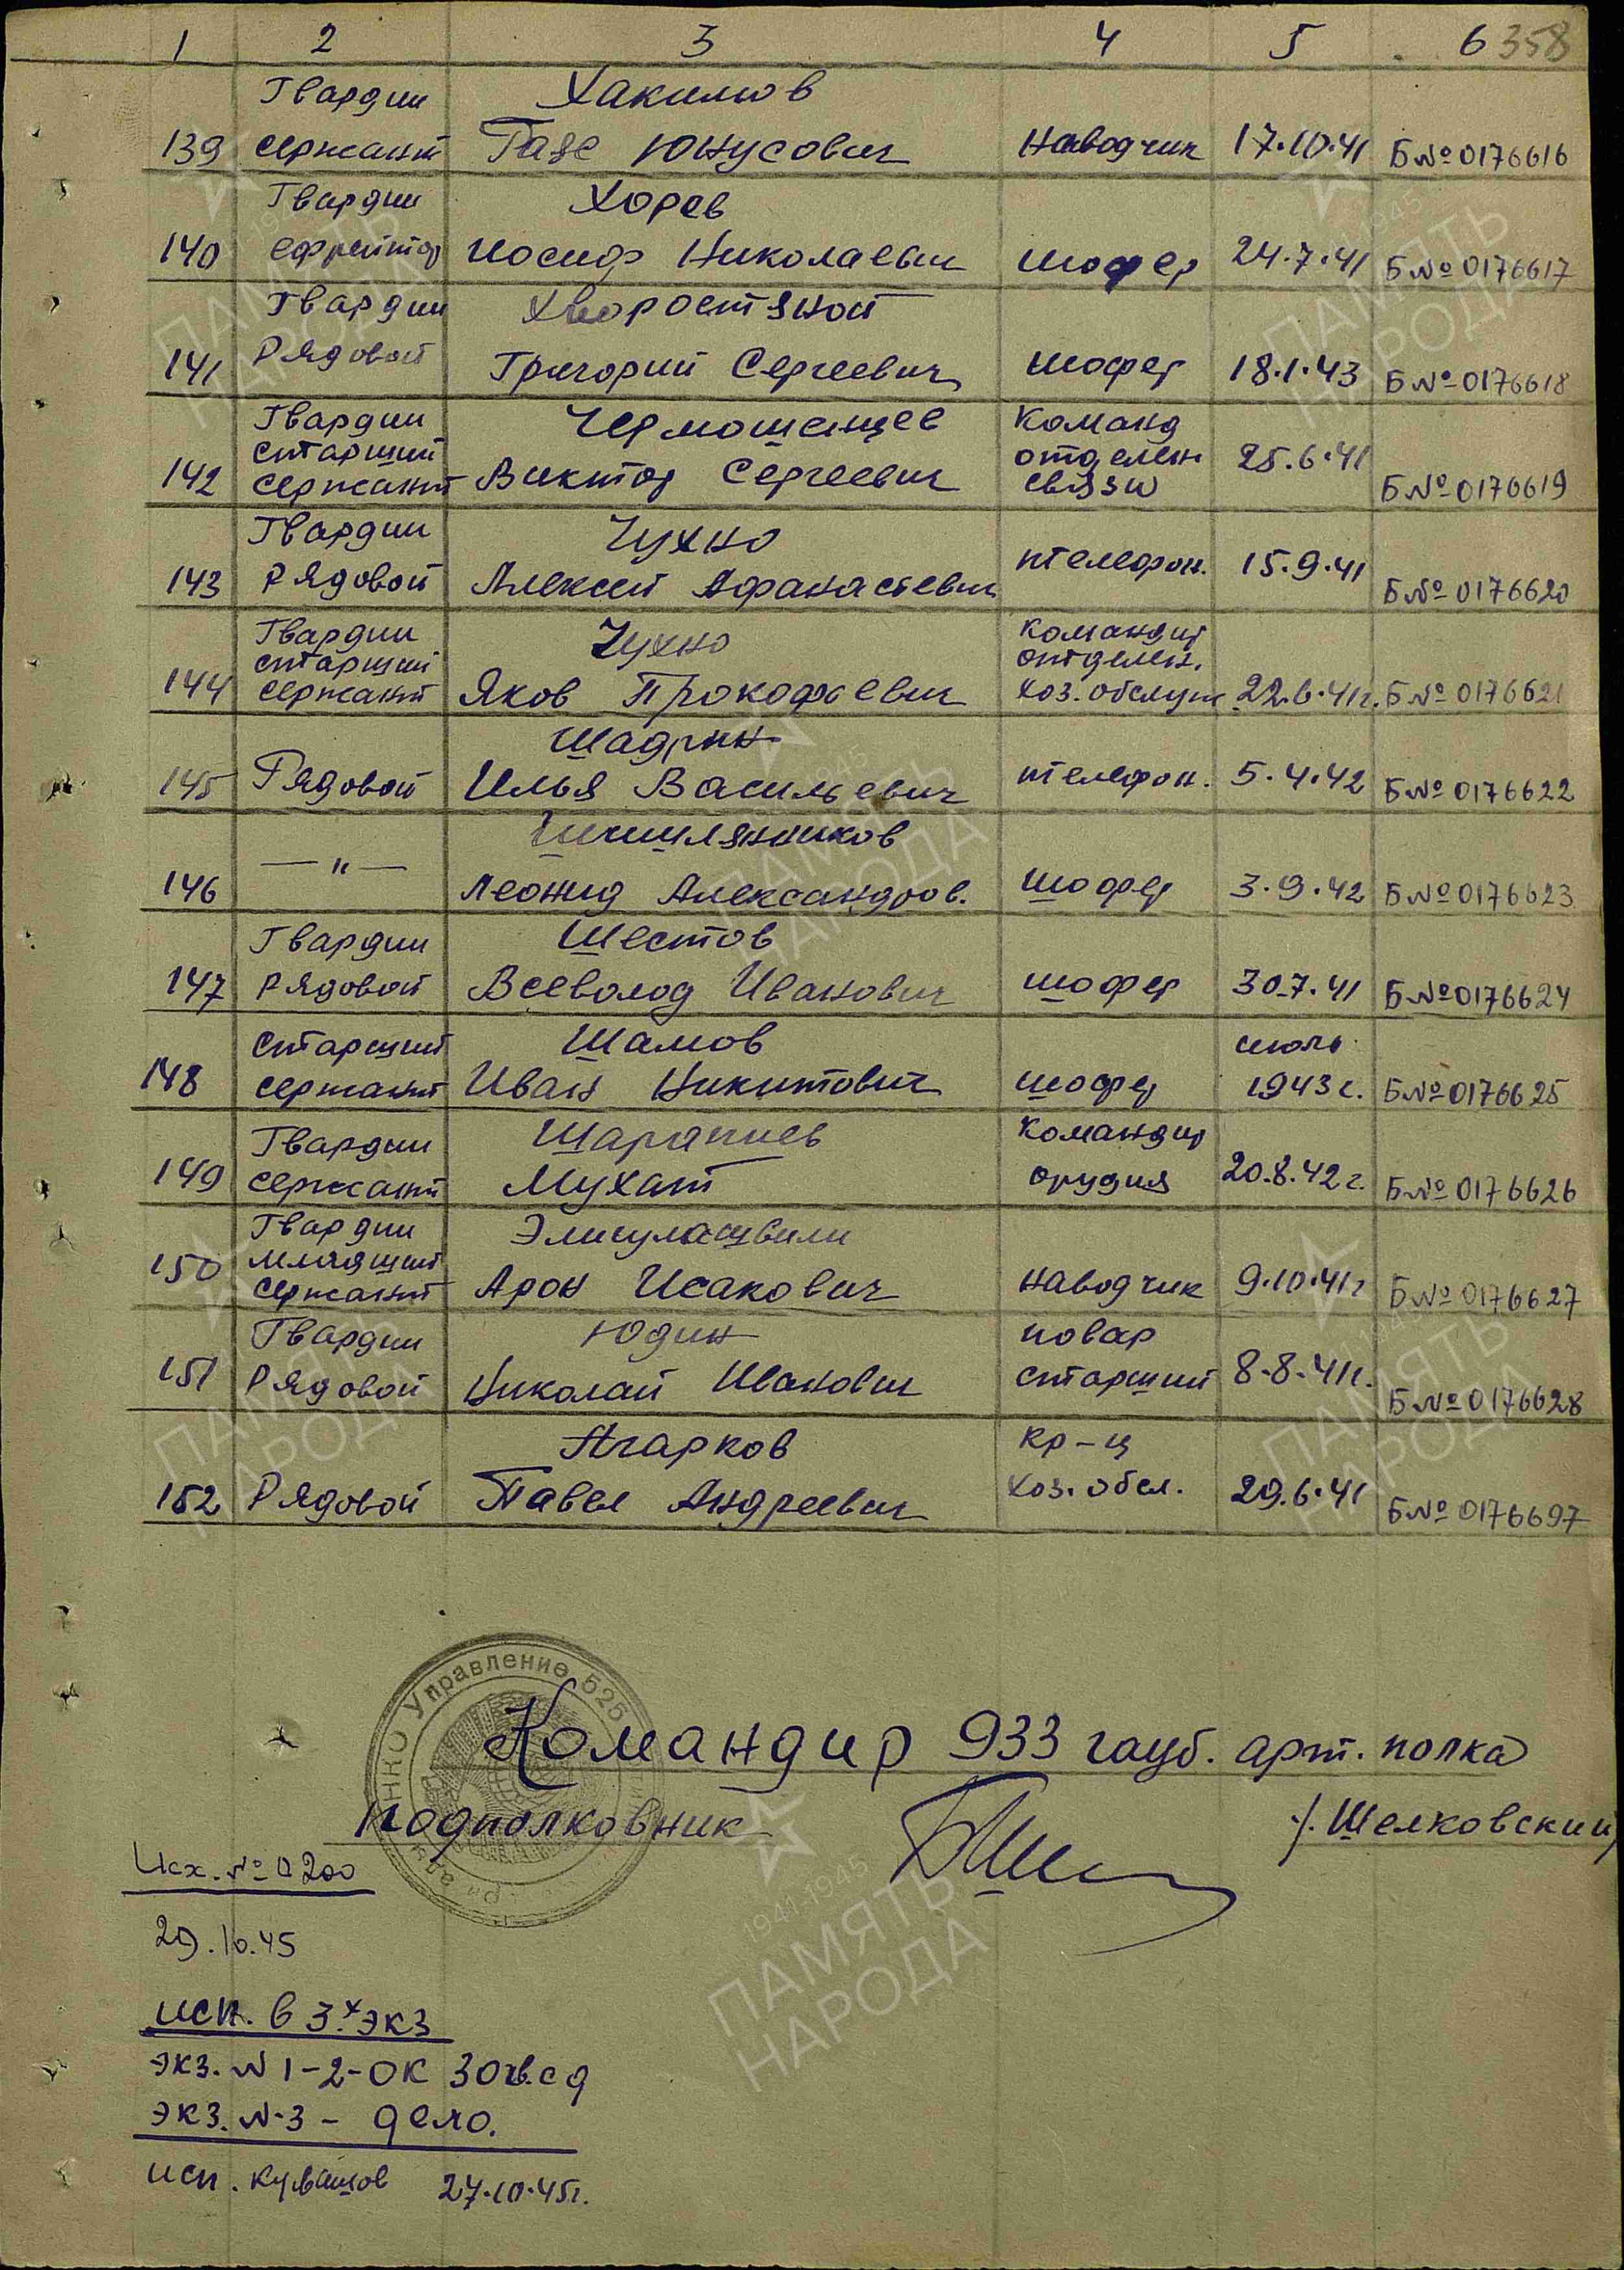 1 2 3 4 5 6 358
Гвардии Хакимов
139 сержант Газе Юнусович наводчик 17.10.41 Б№0176616
Гвардии Хорев
140 ефрейтор Иосиф Николаевич шофер 24.7.41 Б№0176617
Гвардии Хворостяной
141 Рядовой Григорий Сергеевич шофер 18.1.43 Б№0176618
Гвардии Чермошенцев Команд
старший отделен
142 сержант Виктор Сергеевич связи 25.6.41 Б№0176619
Гвардии Чухно
143 Рядовой Алексей Афанасьевич телефон. 15.9.41 Б№0176620
Гвардии Чухно Командир
старший отделен.
144 сержант Яков Прокофьевич хоз. обслуж 22.6.41г. Б№0176621
Шадрин
145 Рядовой Илья Васильевич телефон. 5.4.42 Б№0176622
— " —
146 Леонид Александров. шофер 3.9.42 Б№0176623
Гвардии Шестов
147 Рядовой Всеволод Иванович шофер 30.7.41 Б№0176624
Старший Шамов июль
148 сержант Иван Никитович шофер 1943г. Б№0176625
Гвардии Шарапиев Командир
149 сержант Мухат орудия 20.8.42г. Б№0176626
Гвардии Элигулашвили
младший
150 сержант Арон Исакович наводчик 9.10.41г Б№0176627
Гвардии Юдин повар
151 Рядовой Николай Иванович старший 8.8.41г. Б№0176628
Агарков Кр-ц
152 Рядовой Павел Андреевич хоз. обсл. 29.6.41 Б№0176697
НКО Управление 525
Командир 933 гауб. арт. полка
подполковник /.Шелковский/
Исх. №0200
29.10.45
исп. в 3.х экз
экз. N 1-2-ОК 30гв.сд
экз. N-3 - дело.
исп. 27.10.45г.
1941-1945
ПАМЯТЬ
НАРОДА